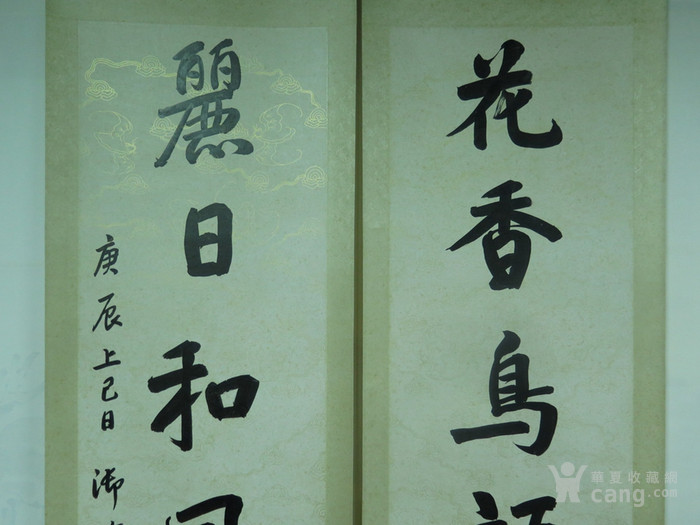 花香鳥
麗日和
庚辰上巳日御
華夏收藏網
cang.com®